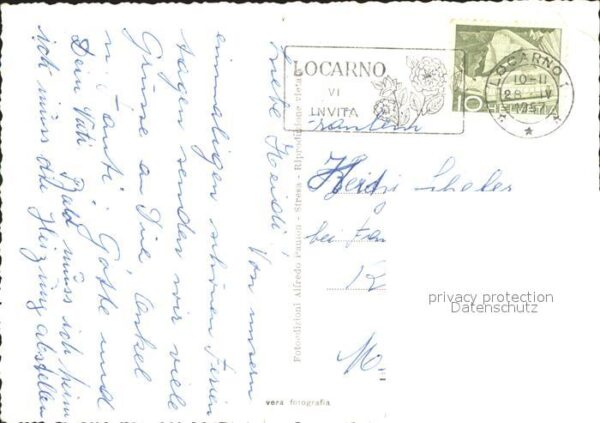 Liebe Heidi! Von unsern
einmaligen schönen Ferien
tagen senden wir viele
Grüsse an Die Onkel
u. Tanti, Götte und
Dein Vati Bald muss ich heim
ich muss die Heizung abstellen
LOCARNO
VI
INVITA
LOCARNO 1
10-11
28. IV
1957
10
HELVETIA
Fräulein
Heidi
bei Fam
K
M
privacy protection
Datenschutz
Fotoedizioni Alfredo Paucon - Stresa - Riproduzione vietata
vera fotografia